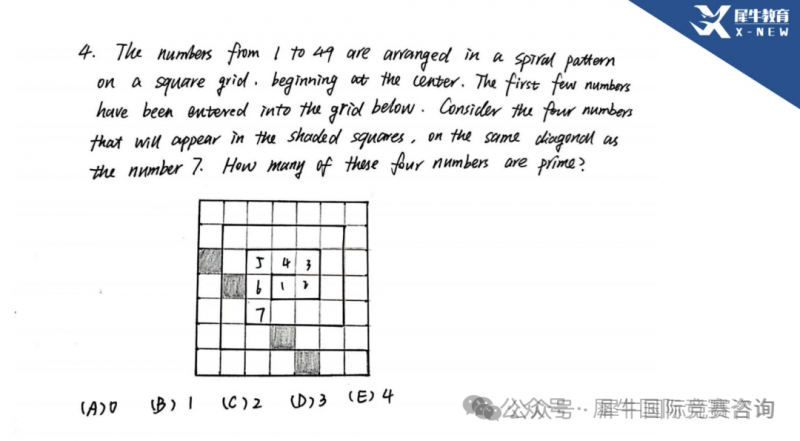 犀牛教育
X-NEW
4. The numbers from 1 to 49 are arranged in a spiral pattern
on a square grid, beginning at the center. The first few numbers
have been entered into the grid below. Consider the four numbers
that will appear in the shaded squares, on the same diagonal as
the number 7. How many of these four numbers are prime?
5 4 3
6 1 2
7
(A) 0 (B) 1 (C) 2 (D) 3 (E) 4
公众号·犀牛国际竞赛咨询